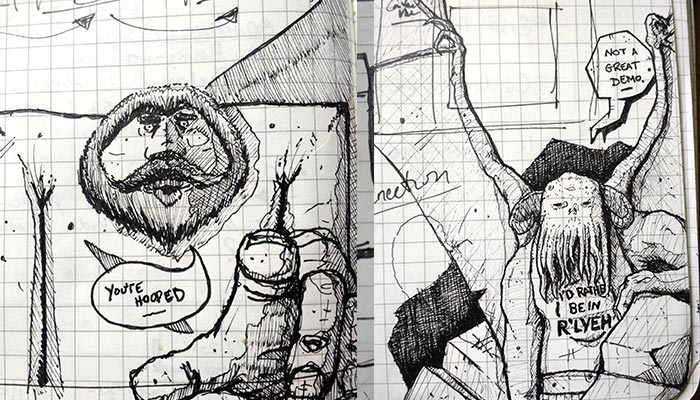 YOU'RE
HOOPED
NOT A
GREAT
DEMO.
I'D RATHER
BE IN
R'LYEH